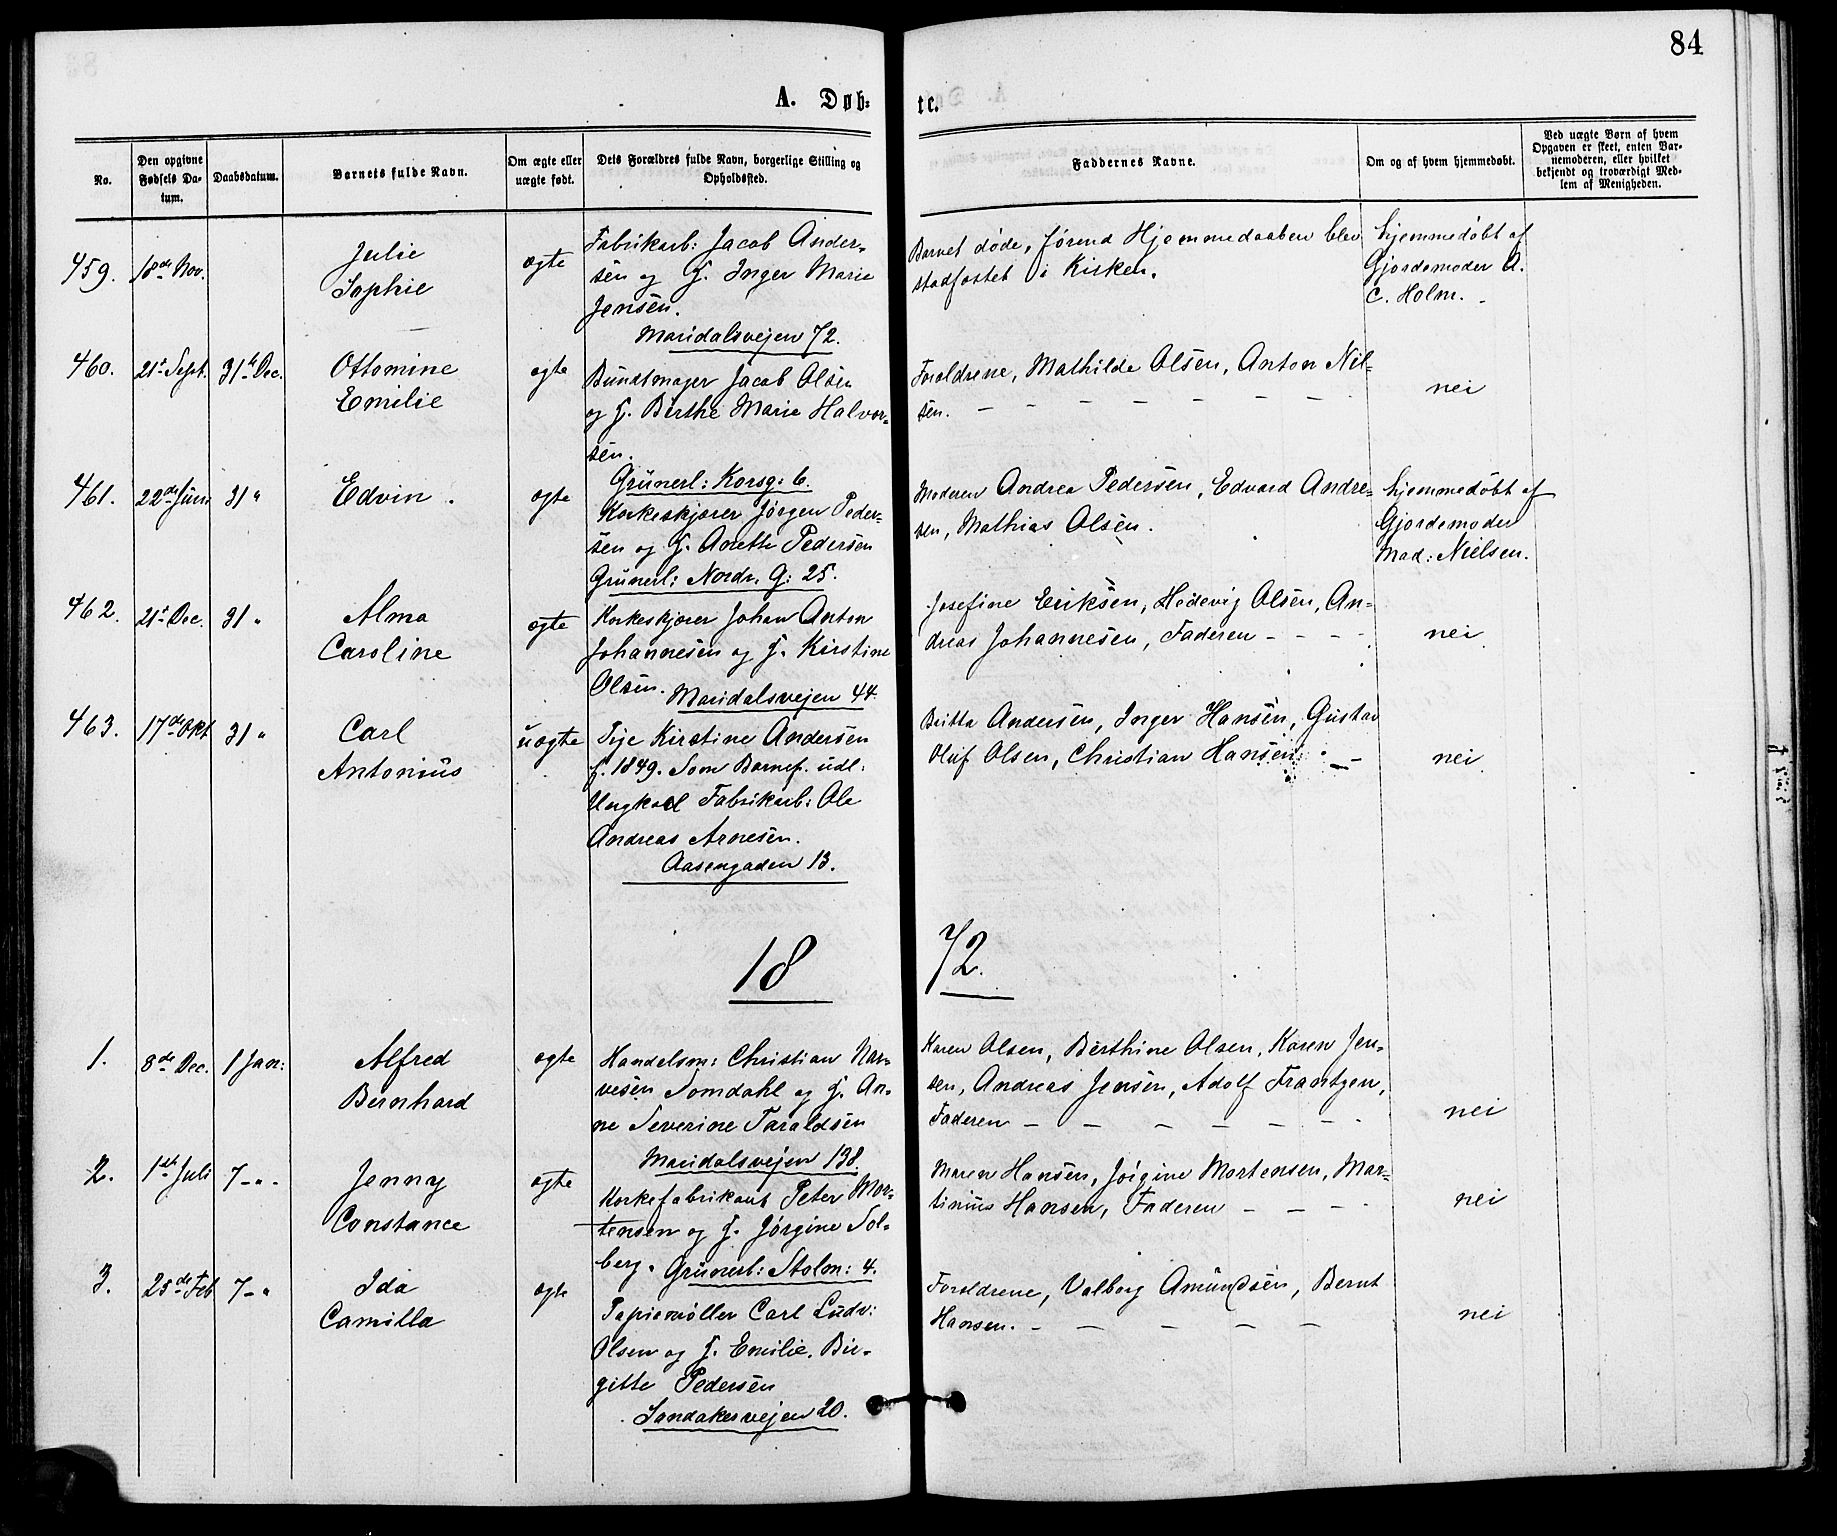 84
A. Døb-
te.
No.
Den opgivne Fødsels Datum.
Daabsdatum.
Barnets fulde Navn.
Om ægte eller uægte født.
Dets Forældres fulde Navn, borgerlige Stilling og Opholdssted.
Faddernes Navne.
Om og af hvem hjemmedøbt.
Ved uægte Børn af hvem Opgaven er skeet, enten Barnemoderen, eller hvilket bekjendt og troværdigt Medlem af Menigheden.
459.
18de Nov.
Julie
Sophie
ægte
Fabrikarb: Jacob Ander-
sen og H. Inger Marie
Jensen.
Maridalsvejen 72.
Barnet døde, førend Hjemmedaaben blev
stadfæstet i Kirken.
hjemmedøbt af
Gjordemoder A.
C. Holm.
460.
21st Sept.
31te Dec.
Ottomine
Emilie
ægte
Bundtmager Jacob Olsen
og H. Birthe Marie Halvor-
sen.
Grünerl: Korsg: 6.
Forældrene, Mathilde Olsen, Anton Niel-
sen. — — — — — —
nei
461.
22de Juni
31 "
Edvin.
ægte
Korkeskjærer Jørgen Peder-
sen og H. Anette Pedersen
Grünerl: Nordr. G: 25.
Moderen Andrea Pedersen, Edvard Andre-
sen, Mathias Olsen.
hjemmedøbt af
Gjordemoder
Mad: Nielsen.
462.
21st Dec.
31 "
Alma
Caroline
ægte
Korkeskjærer Johan Anton
Johannesen og H. Kirstine
Olsen. Maridalsvejen 44.
Josefine Eriksen, Hedevig Olsen, An-
dreas Johannesen, Faderen - - - -
nei
463.
17de Okt
31 "
Carl
Antonius
uægte
Pige Kirstine Andersen
f. 1849. Som Barnef. udl:
Ungkarl Fabrikarb: Ole
Andreas Arnesen.
Aasengaden 13.
Britta Andersen, Inger Hansen, Gustav
Oluf Olsen, Christian Hansen. —
nei
18
72.
1.
8de Dec.
1 Jan:
Alfred
Bernhard
ægte
Handelsm: Christian Nar-
vesen Somdahl og H. An-
ne Severine Taraldsen
Maridalsvejen 138.
Karen Olsen, Berthine Olsen, Karen Jen-
sen, Andreas Jensen, Adolf Frantzen,
Faderen — — — — — —
nei
2.
1ste Juli
7 - " -
Jenny
Constance
ægte
Korkefabrikant Peter Mor-
tensen og H. Jørgine Sol-
berg. Grünerl: Stolm: 4.
Maren Hansen, Jørgine Mortensen, Mar-
tinius Hansen, Faderen - - - -
nei
3.
25de Feb
7 - "
Ida
Camilla
ægte
Papirmøller Carl Ludv:
Olsen og H. Emilie. Bir-
gitte Pedersen
Sandakersvejen 20.
Forældrene, Valborg Amundsen, Bernt
Hansen. — — — — — —
nei